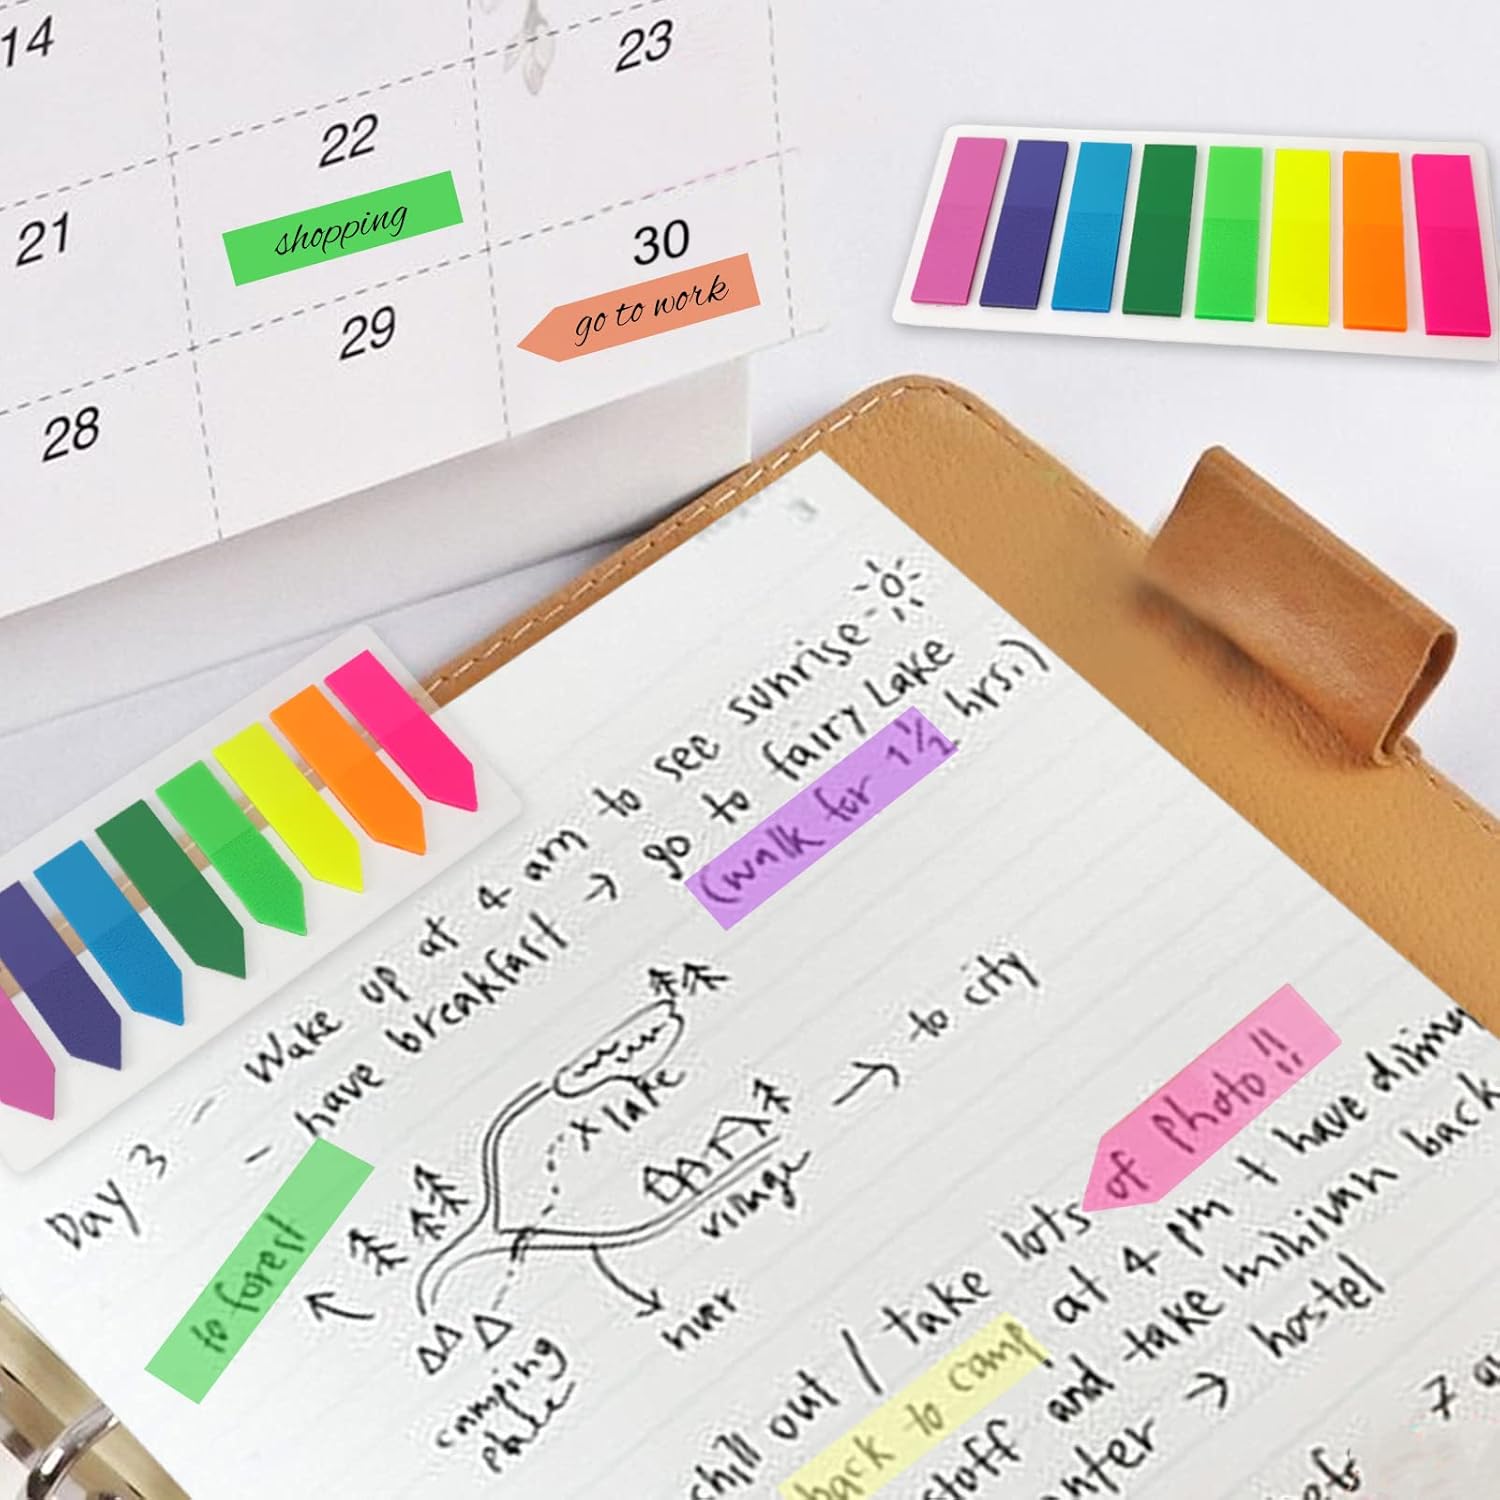 14
23
22
shopping
21
30
go to work
29
28
Day 3 - Wake up at 4 am to see sunrise
- have breakfast → go to fairy Lake
(walk for 1½ hrs.)
→ to city
x lake
village
to forest
river
camping
place
chill out / take lots of photo!!
back to camp at 4 pm + have dinne
stuff and take minivan back
→ hostel
7